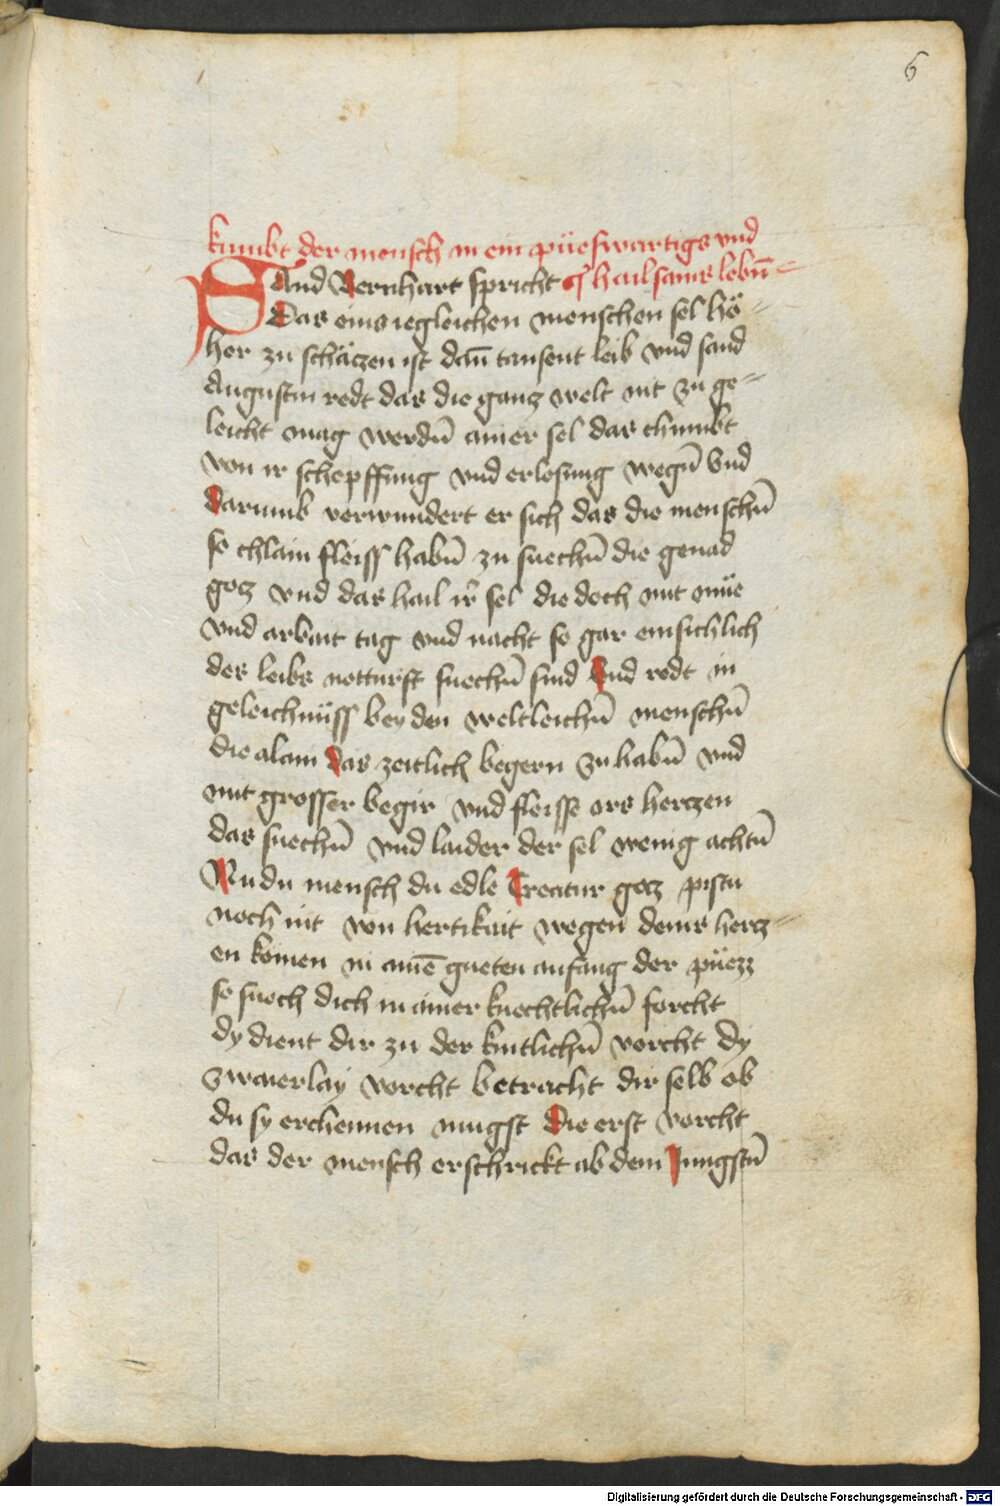 6
kumbt der mensch in ein püeswartigs und
Sand Bernhart spricht hailsams lebn̄
Das eins iegleichen menschen sel hö=
her zu schäczen ist dan̄ tausent leib vnd sand
Augustin redt das die gancz welt nit zu ge=
leicht mag werdn̄ ainer sel das chumbt
von ir schepffung vnd erlosung wegn̄ Vnd
darumb verwundert er sich das die menschn̄
so chlain fleiss habn̄ zu suechn̄ die genad
gotz vnd das hail ir̄ sel die doch mit müe
vnd arbait tag vnd nacht so gar emsichlich
der leibs notturft suechn̄ sind Vnd redt in
geleichnüss bey den weltleichn̄ menschn̄
die alain das zeitlich begern zu habn̄ vnd
mit grosser begir vnd fleisse ors herczen
das suechn̄ vnd laider der sel wenig achtn̄
Nu du mensch du edle Creatur gotz pistu
noch nit von hertikait wegen deins hercz=
en komen in ainē gueten anfang der püezz
so suech dich in ainer knechtlichn̄ forcht
dy dient dir zu der kintlichn̄ vorcht Dy
zwaierlay vorcht betracht dir selb ob
du sy erchennen mugst Die erst vorcht
das der mensch erschrickt ab dem Jungstn̄
Digitalisierung gefördert durch die Deutsche Forschungsgemeinschaft - DFG